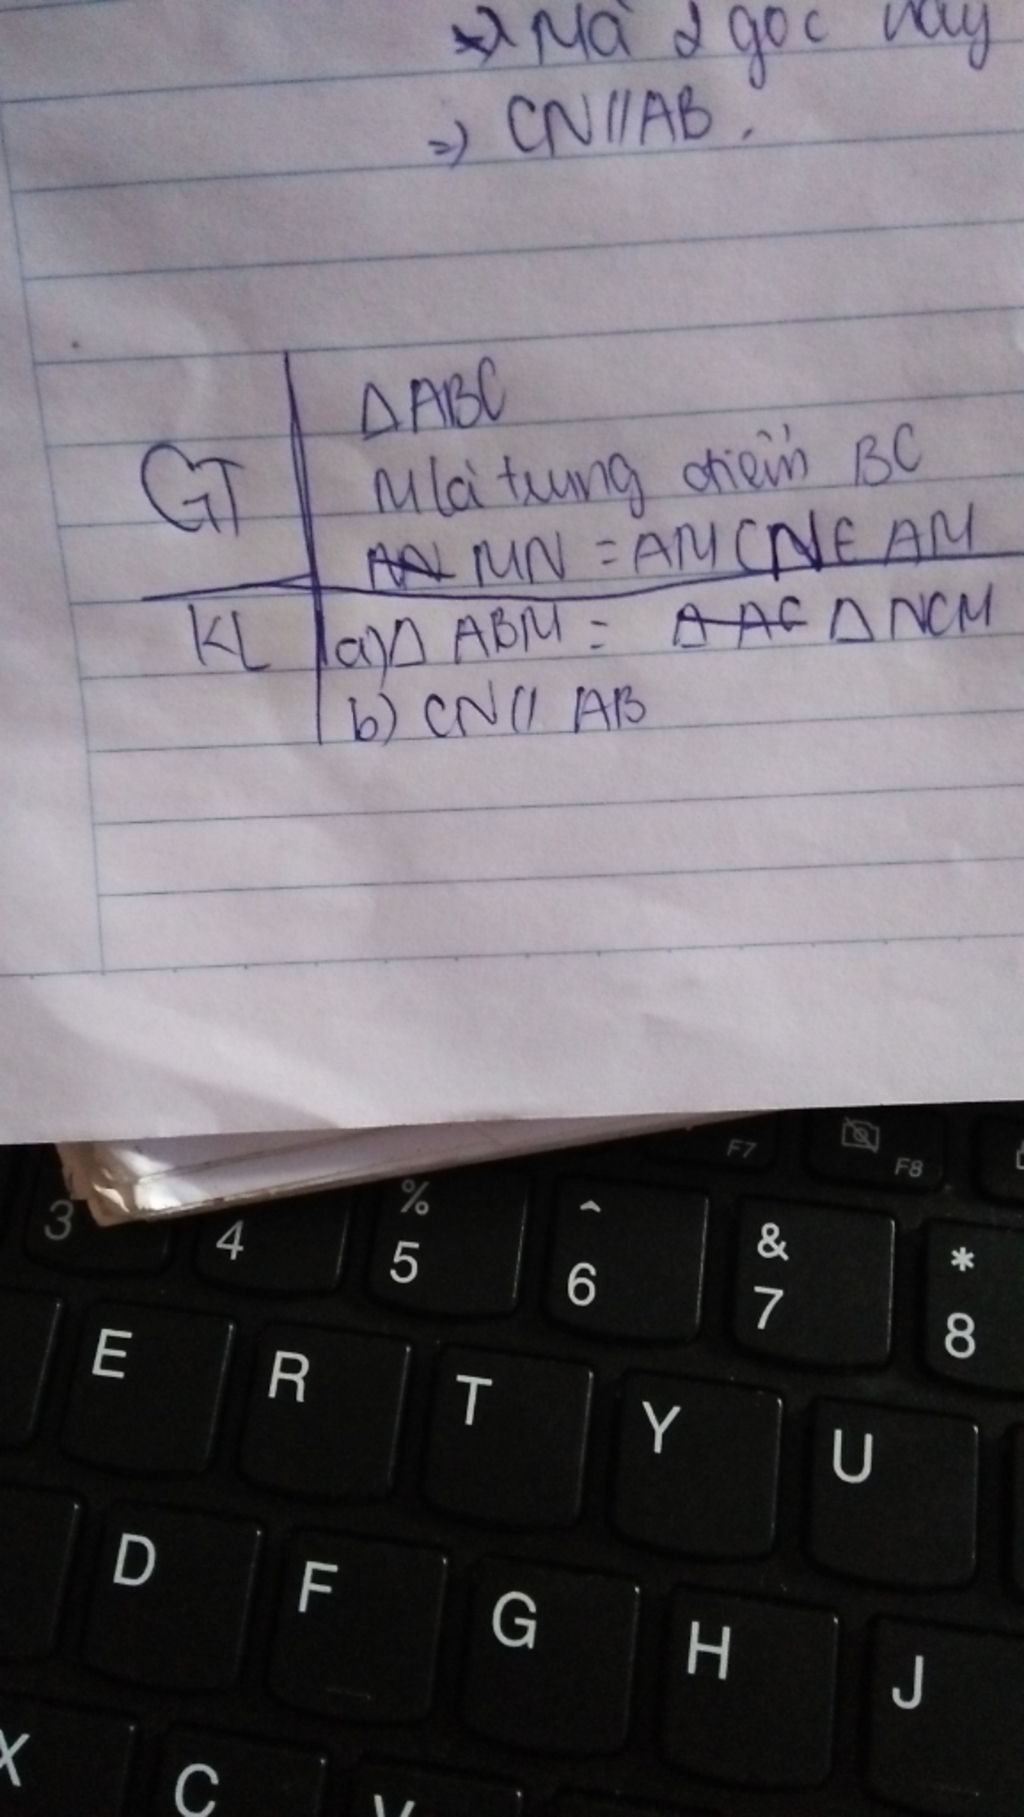 => Mà 2 góc này
=> CN // AB.
GT
Δ ABC
M là trung điểm BC
MN = AM (N ∈ AM
KL
a) Δ ABM = Δ NCM
b) CN // AB
F7
F8
3
4
%
5
^
6
&
7
*
8
E
R
T
Y
U
D
F
G
H
J
X
C
V